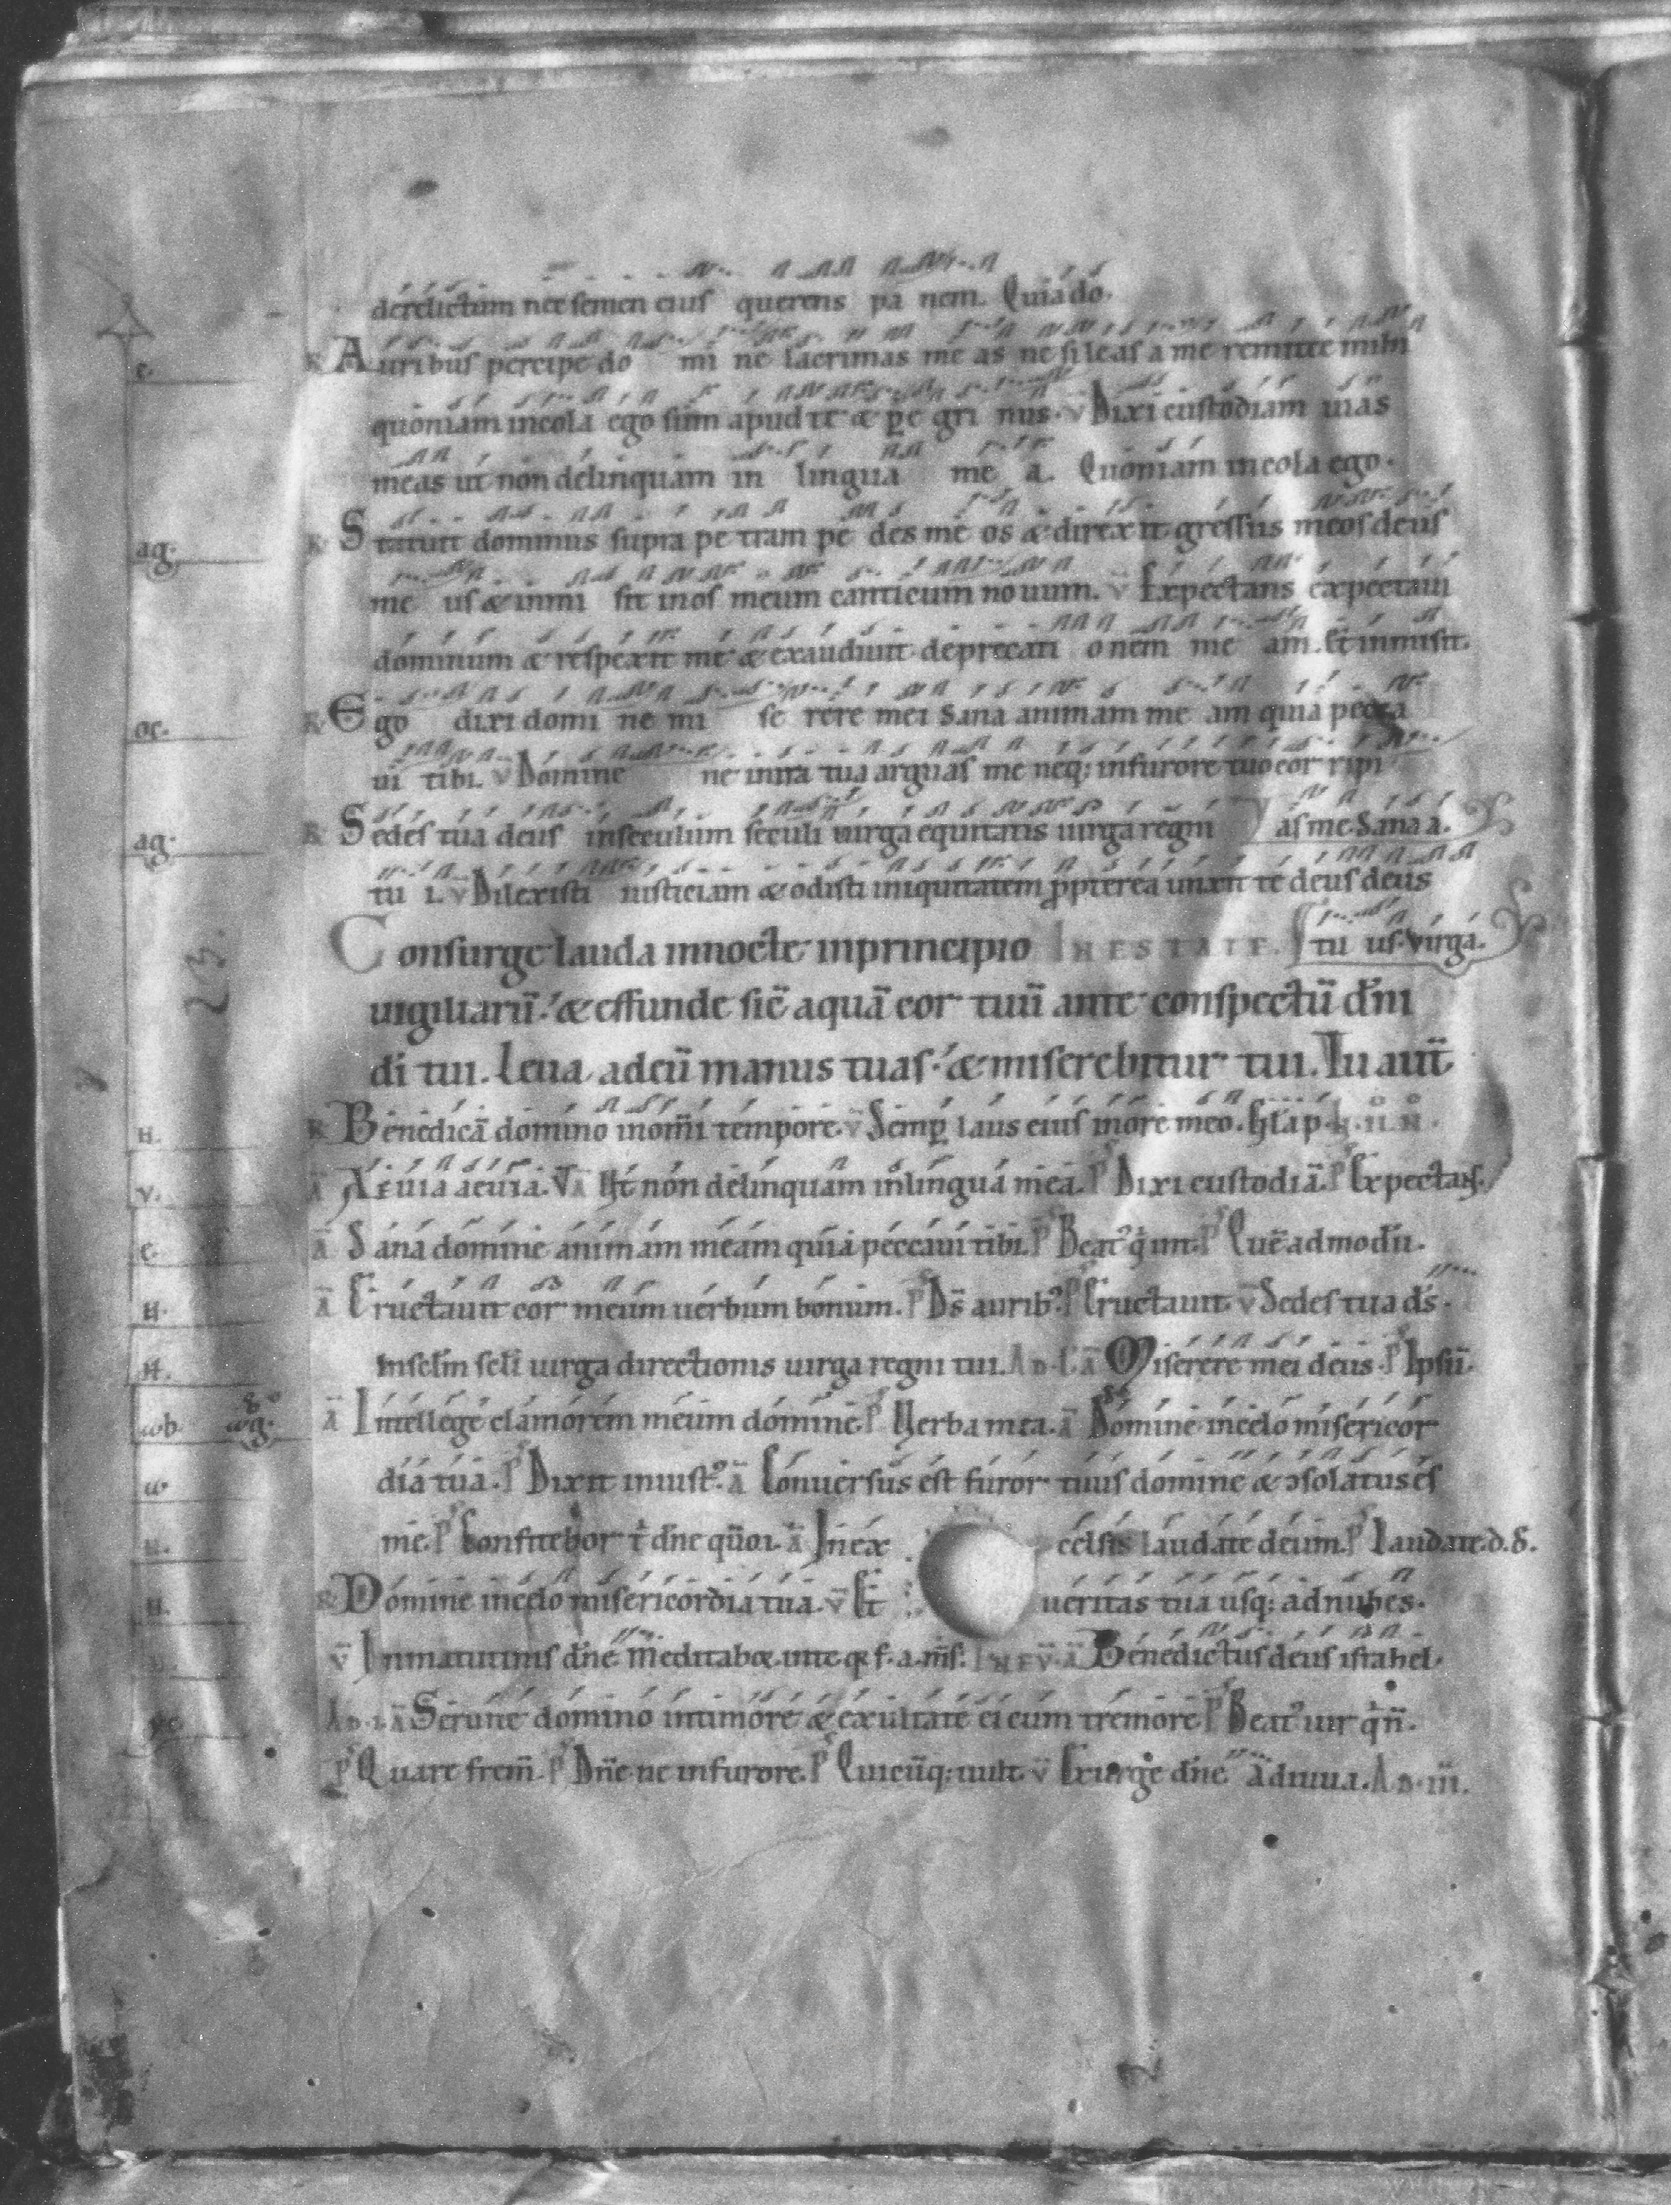 derelictum nec semen eius querens pa nem. Quia do.
e. R Auribus percipe do mi ne lacrimas me as ne sileas a me remitte mihi
quoniam incola ego sum apud te & pe gri nus. v Dixi custodiam uias
meas ut non delinquam in lingua me a. Quoniam incola ego.
ag. R Statuit dominus supra pe tram pe des me os & direxit gressus meos deus
me us & inmi sit inos meum canticum nouum. v Expectans expectaui
dominum & respexit me & exaudiuit deprecati onem me am. Et inmisit.
oc. R Ego dixi domi ne mi se rere mei Sana animam me am quia pecca
ui tibi. v Domine ne inira tua arguas me neq; infurore tuo cor ripi
ag. R Sedes tua deus inseculum seculi uirga equitatis uirga regni as me. Sana a.
tu i. v Dilexisti iusticiam & odisti iniquitatem ppterea unxit te deus deus
Consurge lauda innocte inprincipio INESTATE. tu us. Virga.
uigiliarū. & effunde sic̄ aquā cor tuū ante conspectū dn̄i
di tui. Leua adeū manus tuas. & miserebitur tui. Tu aut̄
H. R Benedicā domino inom̄i tempore. v Semp laus eius inore meo.
v. ā Aeuia aeuia. V ā Ut non delinquam inlingua mea. p̄s Dixi custodiā. p̄s Expectans.
e. ā Sana domine animam meam quia peccaui tibi. p̄s Beat' q̇ int. p̄s Quēadmodū.
H. ā Eructauit cor meum uerbum bonum. p̄s Ds̄ aurib'. p̄s Eructauit. v Sedes tua ds̄.
H. Insclm scli uirga directionis uirga regni tui. AD. L ā Miserere mei deus. p̄s Ipsū.
ā Intellege clamorem meum domine. p̄s Verba mea. ā Domine incelo misericor
dia tua. p̄s Dixit iniust'. ā Conuersus est furor tuus domine & ɔsolatus es
H. me. p̄s Confitebor t̄ dne qūo i. ā Inex celsis laudate deum. p̄s Laudate. d.
H. R Domine incelo misericordia tua. v Et ueritas tua usq; adnubes.
v Inmatutinis dn̄e meditabor inte. q f. a. m̄s. IN EV. ā Benedictus deus israhel.
AD. I. ā Seruite domino intimore & exultate ei cum tremore. p̄s Beat' uir q̇ n̄.
p̄s Quare frem̄. p̄s Dn̄e ne infurore. p̄s Quicūq; uult. v Exurge dn̄e adiuua. AD. III.